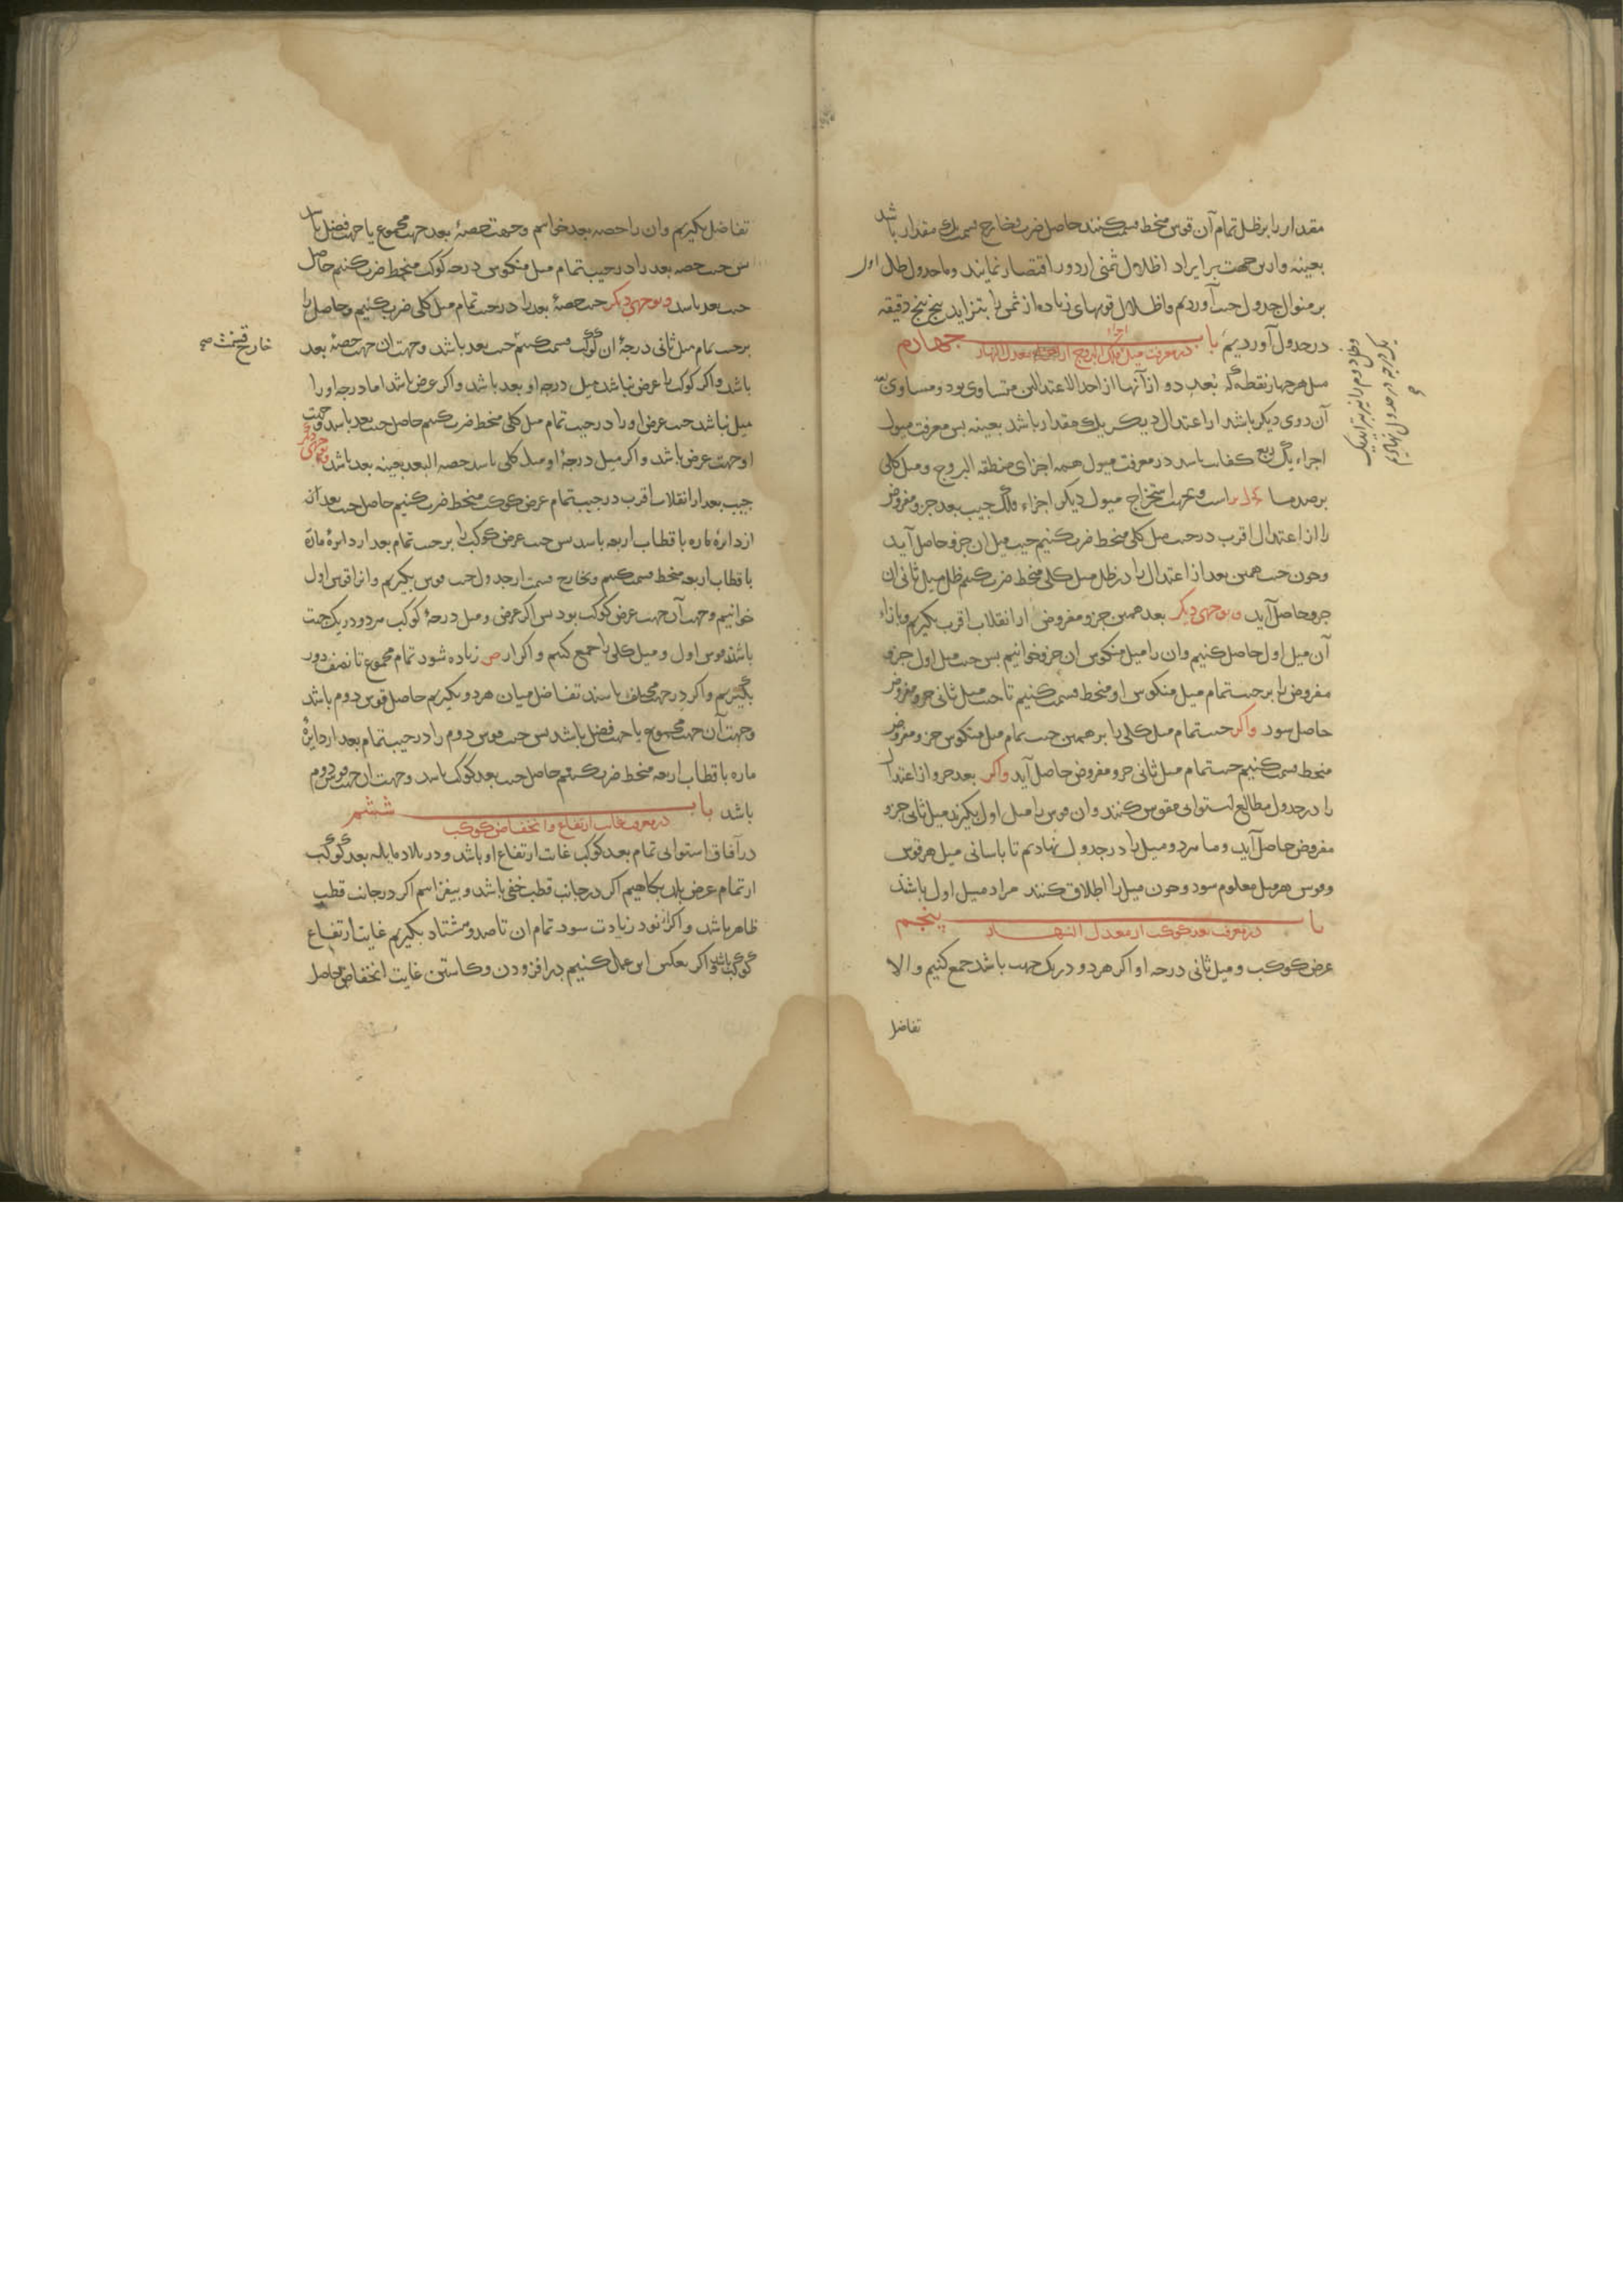 مقدار را بر ظل تمام آن قوس منحط قسمت کنند حاصل ضرب و خارج قسمت یک مقدار باشد
بعینه و از این جهت بر ایراد اظلال ثمنی از دور اقتصار نمایند و ما جدول ظل اول
بر منوال جدول جیب آوردیم و اظلال قوسهای زیاده از ثمن را بتزاید پنج پنج دقیقه
در جدول آوردیم باب چهارم
در معرفت میل فلک البروج از معدل النهار
میل هر چهار نقطه که بعد دو از آنها از احد الاعتدالین متساوی بود و مساوی بعد
آن دوی دیگر باشد از اعتدال دیگر یک مقدار باشد بعینه پس معرفت میول
اجزاء یک ربع کفایت باشد در معرفت میول همه اجزای منطقه البروج و میل کلی
برصد ما است و جهت استخراج میول دیگر اجزاء فلک جیب بعد جزو مفروض
را از اعتدال اقرب در جیب میل کلی منحط ضرب کنیم جیب میل آن جزو حاصل آید
و چون جیب همین بعد از اعتدال را در ظل میل کلی منحط ضرب کنیم ظل میل ثانی آن
جزو حاصل آید و بوجهی دیگر بعد همین جزو مفروض از انقلاب اقرب بگیریم و بازاء
آن میل اول حاصل کنیم و آن را میل منکوس آن جزو خوانیم پس جیب میل اول جزو
مفروض را بر جیب تمام میل منکوس او منحط قسمت کنیم تا جیب میل ثانی جزو مفروض
حاصل شود و اگر جیب تمام میل کلی را بر همین جیب تمام میل منکوس جزو مفروض
منحط قسمت کنیم جیب تمام میل ثانی جزو مفروض حاصل آید و اگر بعد جزو از اعتدال
را در جدول مطالع استوایی مقوس کنند و آن قوس را میل اول بگیرند میل ثانی جزو
مفروض حاصل آید و ما هر دو میل را در جدول نهادیم تا باسانی میل هر قوس
و قوس هر میل معلوم شود و چون میل را اطلاق کنند مراد میل اول باشد
باب پنجم
در معرفت بعد کوکب از معدل النهار
عرض کوکب و میل ثانی درجه او اگر هر دو در یک جهت باشد جمع کنیم و الا
تفاضل
تفاضل بگیریم و آن را حصه بعد خوانیم و جهت حصهٔ بعد جهت مجموع یا جهت فضل باشد
پس جیب حصه بعد را در جیب تمام میل منکوس درجه کوکب منحط ضرب کنیم حاصل
جیب بعد باشد و بوجهی دیگر جیب حصهٔ بعد را در جیب تمام میل کلی ضرب کنیم و حاصل را
بر جیب تمام میل ثانی درجهٔ آن کوکب قسمت کنیم جیب بعد باشد و جهت آن جهت حصهٔ بعد
خارج قسمت صح
باشد و اگر کوکب را عرض نباشد میل درجه او بعد باشد و اگر عرض باشد اما درجه او را
میل نباشد جیب عرض او را در جیب تمام میل کلی منحط ضرب کنیم حاصل جیب بعد باشد و جهت
او جهت عرض باشد و اگر میل درجهٔ او میل کلی باشد حصه البعد بعینه بعد باشد و بوجهی دیگر
جیب بعد از انقلاب اقرب در جیب تمام عرض کوکب منحط ضرب کنیم حاصل جیب بعد آن
از دایرهٔ ماره باقطاب اربعه باشد پس جیب عرض کوکب را بر جیب تمام بعد از دایرهٔ مارة
باقطاب اربعه منحط قسمت کنیم و بخارج قسمت از جدول جیب قوس بگیریم و آنرا قوس اول
خوانیم و جهت آن جهت عرض کوکب بود پس اگر عرض و میل درجهٔ کوکب هر دو در یک جهت
باشند قوس اول و میل کلی را جمع کنیم و اگر از ص زیاده شود تمام مجموع تا نصف دور
بگیریم و اگر در جهت مختلف باشند تفاضل میان هر دو بگیریم حاصل قوس دوم باشد
و جهت آن جهت مجموع یا جهت فضل باشد پس جیب قوس دوم را در جیب تمام بعد از دایرهٔ
ماره باقطاب اربعه منحط ضرب کنیم حاصل جیب بعد کوکب باشد و جهت آن جهت قوس دوم
باشد باب ششم
در معرفت غایت ارتفاع و انخفاض کوکب
در آفاق استوایی تمام بعد کوکب غایت ارتفاع او باشد و در بلاد مایله بعد کوکب
از تمام عرض بلد بکاهیم اگر در جانب قطب خفی باشد و بیفزاییم اگر در جانب قطب
ظاهر باشد و اگر از نود زیادت شود تمام آن تا صد و هشتاد بگیریم غایت ارتفاع
کوکب باشد و اگر بعکس این عمل کنیم در افزودن و کاستن غایت انخفاض حاصل